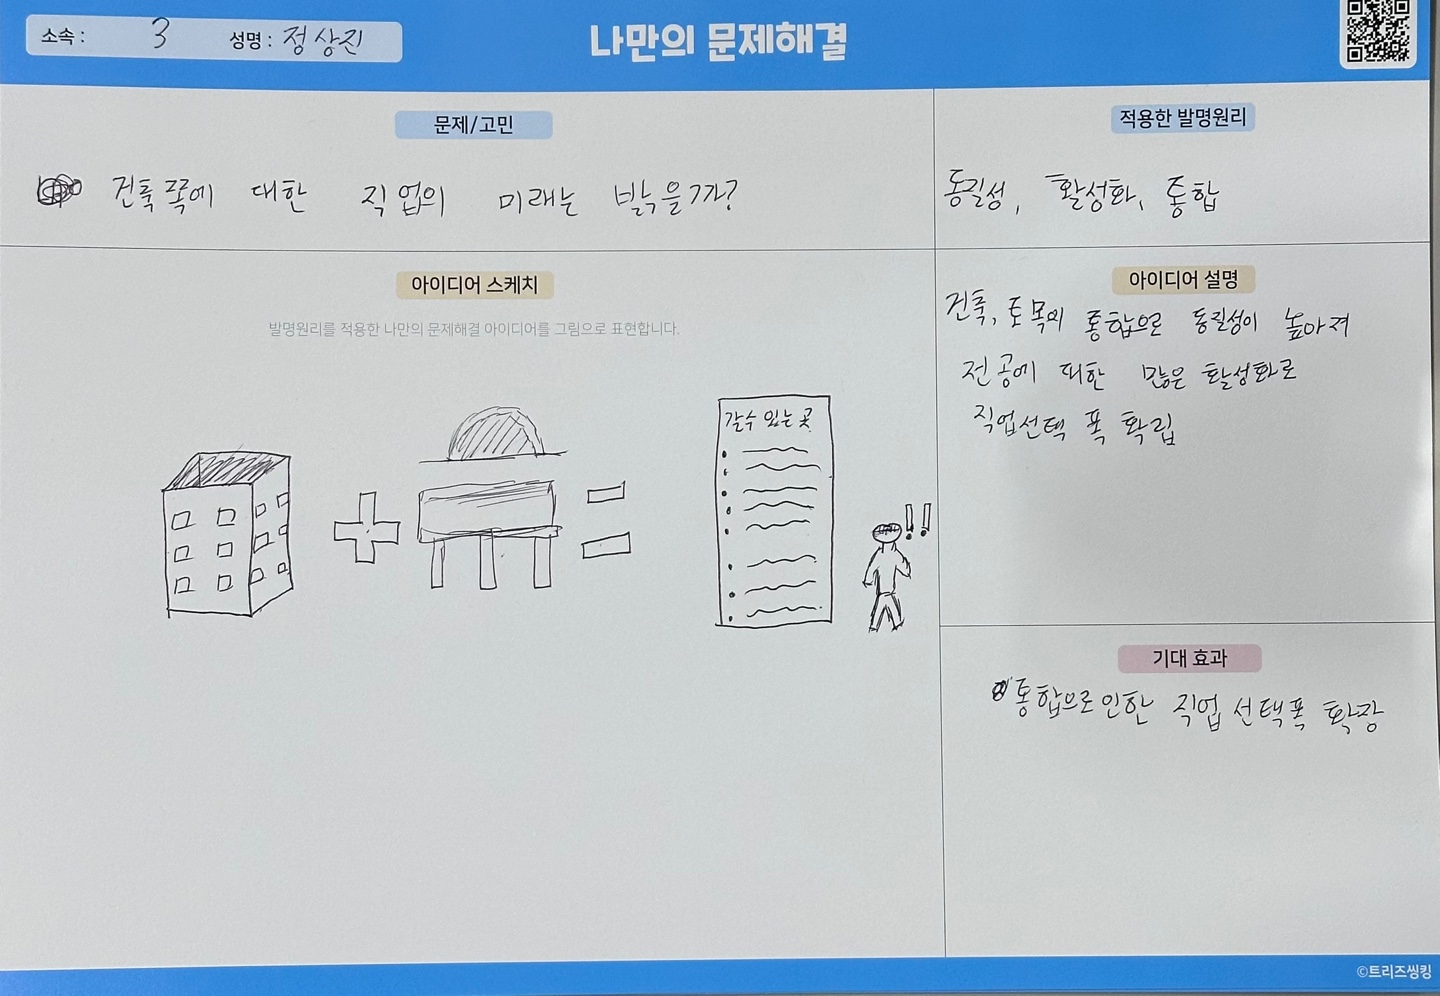 소속 : 3 성명 : 정상진
나만의 문제해결
문제/고민
건축쪽에 대한 직업의 미래는 밝을까?
적용한 발명원리
동질성, 활성화, 통합
아이디어 스케치
발명원리를 적용한 나만의 문제해결 아이디어를 그림으로 표현합니다.
갈수 있는 곳
!!
아이디어 설명
건축, 토목의 통합으로 동질성이 높아져
전공에 대한 많은 활성화로
직업선택 폭 확립
기대 효과
통합으로 인한 직업 선택폭 확장
©트리즈씽킹